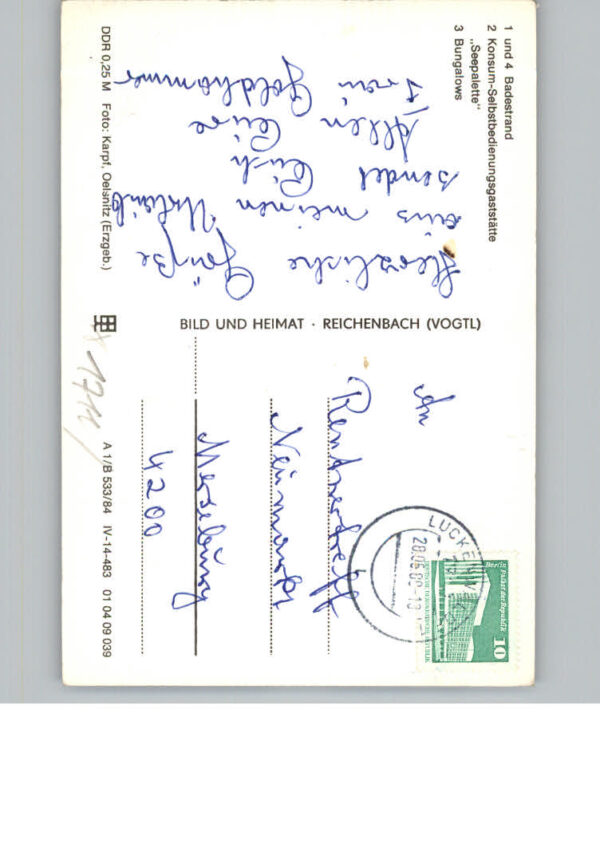 1 und 4 Badestrand
2 Konsum-Selbstbedienungsgaststätte
„Seepalette"
3 Bungalows
Herzliche Grüße
aus meinen Urlaub
sendet Euch
Allen Eure
Frau Goldhammer
DDR 0,25 M Foto: Karpf, Oelsnitz (Erzgeb.)
BILD UND HEIMAT · REICHENBACH (VOGTL)
Berlin, Palast der Republik
10
DEUTSCHE DEMOKRATISCHE REPUBLIK
An
Rentnertreff
Neumarkt
Merseburg
4200
A 1/B 533/84 IV-14-483 01 04 09 039